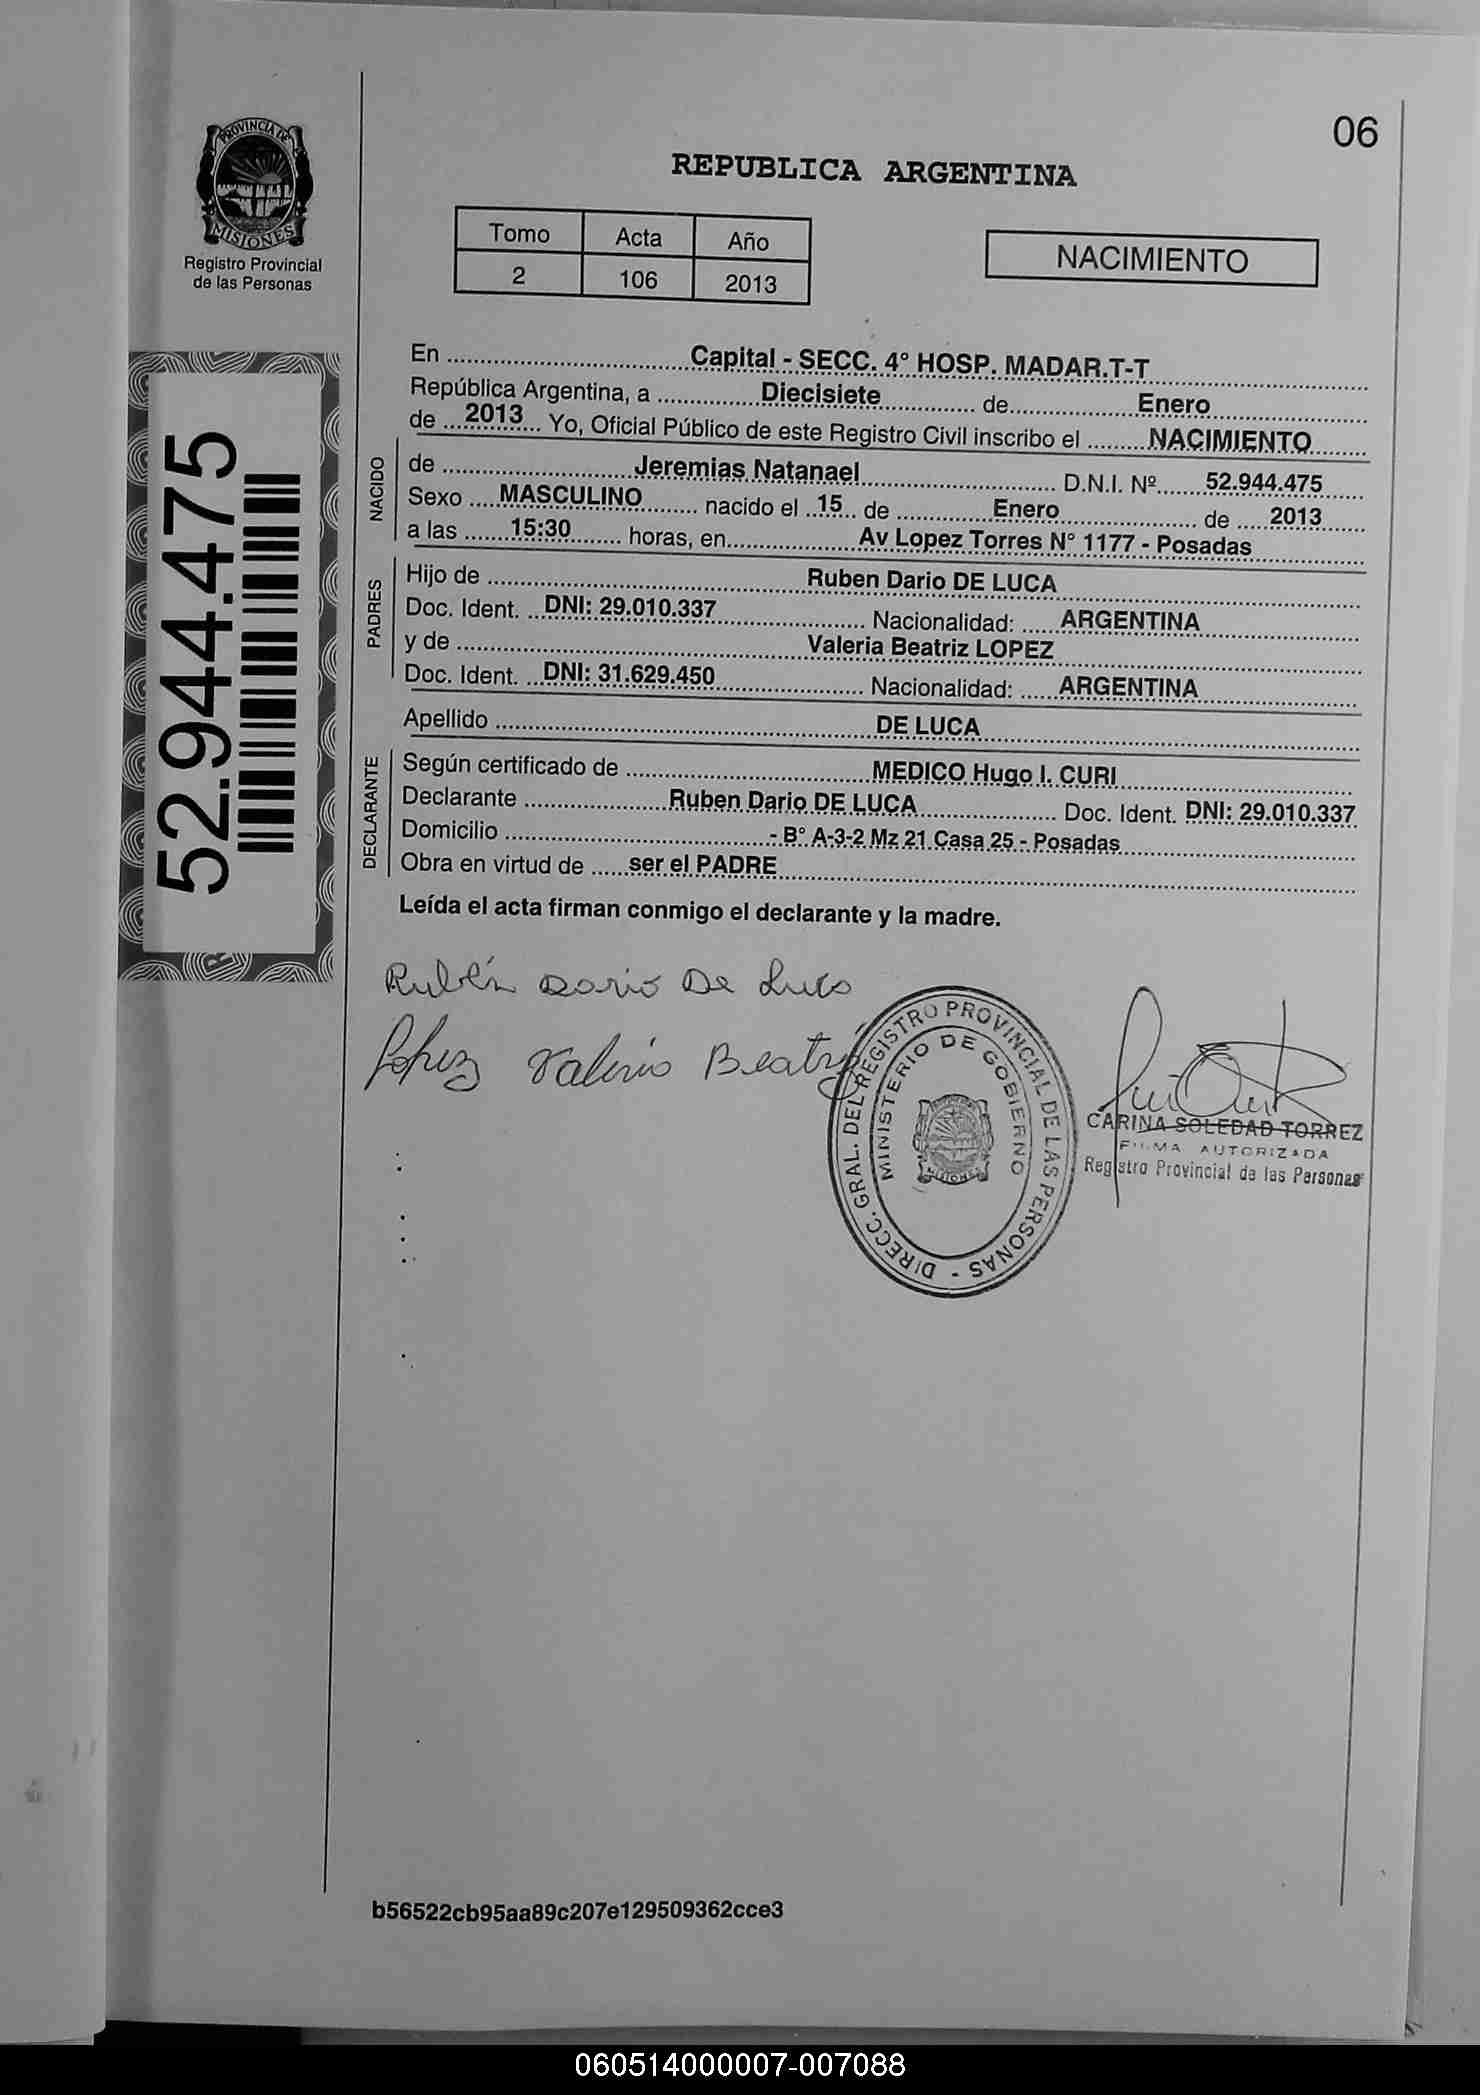 06
REPUBLICA ARGENTINA
PROVINCIA DE
MISIONES
Registro Provincial
de las Personas
Tomo Acta Año
2 106 2013
NACIMIENTO
52.944.475
En Capital - SECC. 4° HOSP. MADAR.T-T
República Argentina, a Diecisiete de Enero
de 2013 Yo, Oficial Público de este Registro Civil inscribo el NACIMIENTO
NACIDO
de Jeremias Natanael D.N.I. Nº 52.944.475
Sexo MASCULINO nacido el 15 de Enero de 2013
a las 15:30 horas, en Av Lopez Torres N° 1177 - Posadas
PADRES
Hijo de Ruben Dario DE LUCA
Doc. Ident. DNI: 29.010.337 Nacionalidad: ARGENTINA
y de Valeria Beatriz LOPEZ
Doc. Ident. DNI: 31.629.450 Nacionalidad: ARGENTINA
Apellido DE LUCA
DECLARANTE
Según certificado de MEDICO Hugo I. CURI
Declarante Ruben Dario DE LUCA Doc. Ident. DNI: 29.010.337
Domicilio - B° A-3-2 Mz 21 Casa 25 - Posadas
Obra en virtud de ser el PADRE
Leída el acta firman conmigo el declarante y la madre.
Rubén Dario De Luca
Lopez Valeria Beatriz
DIRECC. GRAL. DEL REGISTRO PROVINCIAL DE LAS PERSONAS -
MINISTERIO DE GOBIERNO
MISIONES
CARINA SOLEDAD TORREZ
FIRMA AUTORIZADA
Registro Provincial de las Personas
b56522cb95aa89c207e129509362cce3
060514000007-007088